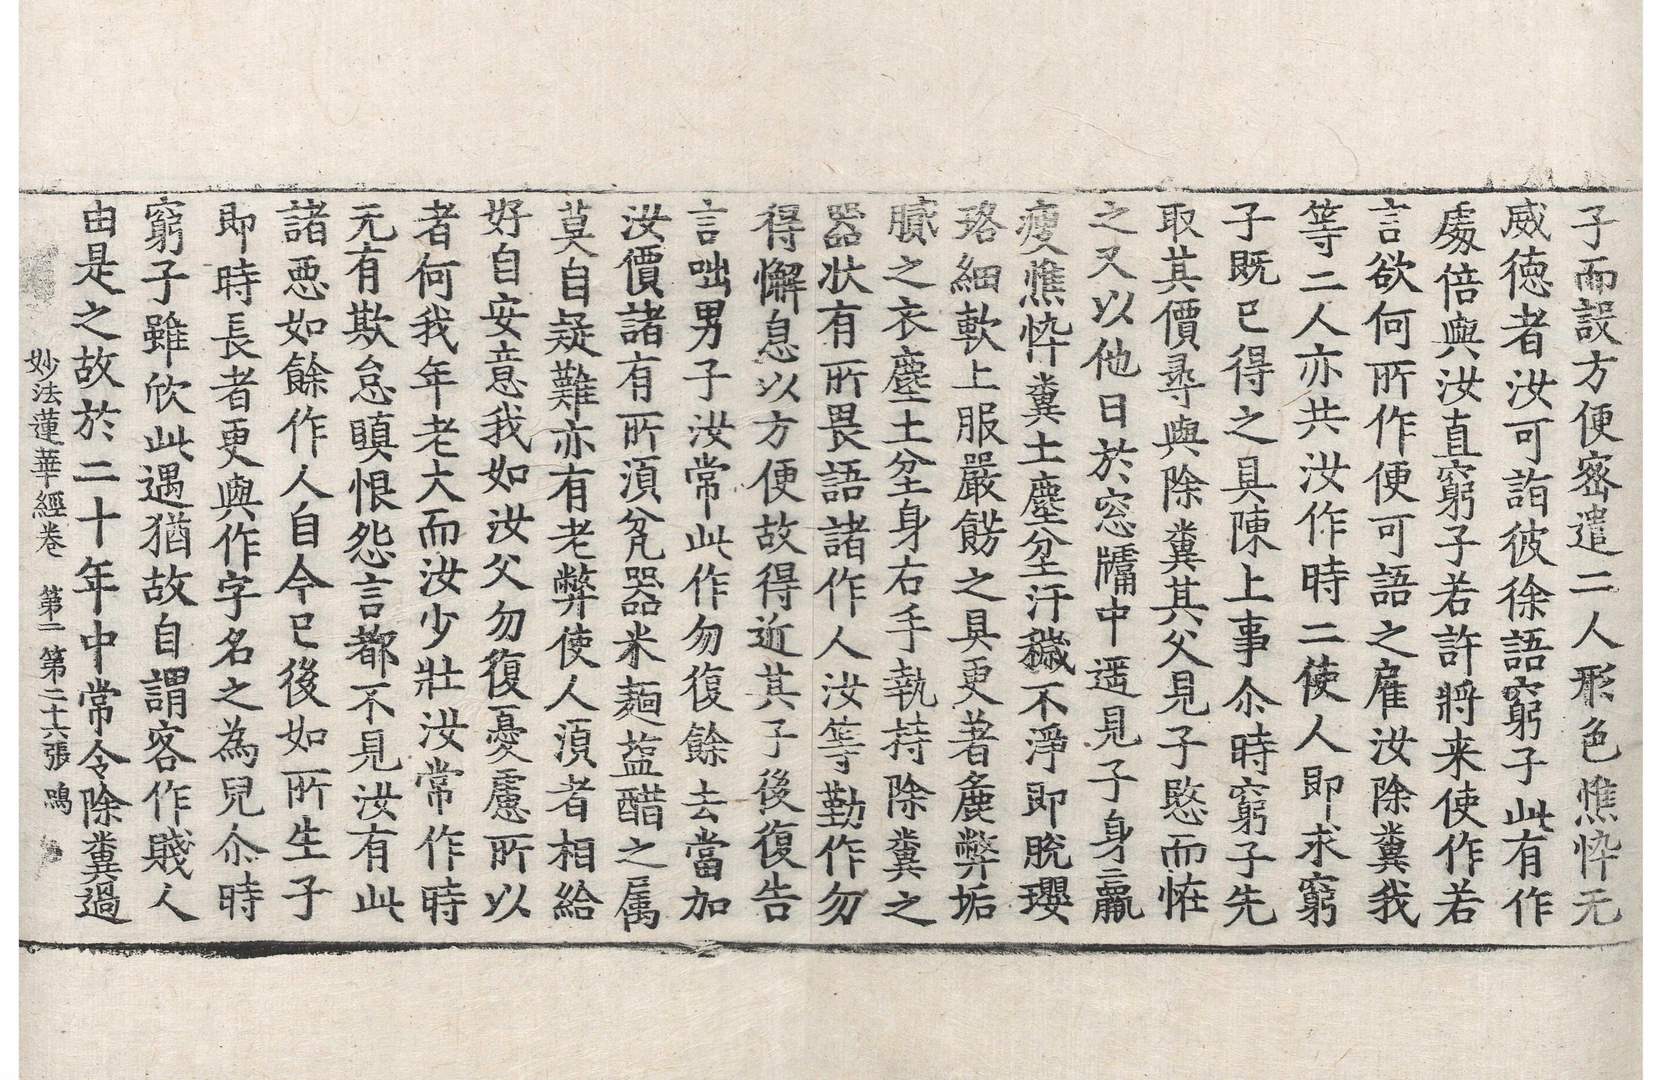 子而設方便密遣二人形色憔悴无
威德者汝可詣彼徐語窮子此有作
處倍與汝直窮子若許將来使作若
言欲何所作便可語之雇汝除糞我
等二人亦共汝作時二使人即求窮
子既已得之具陳上事尒時窮子先
取其價尋與除糞其父見子愍而恠
之又以他日於窓牖中遥見子身羸
瘦憔悴糞土塵坌汙穢不淨即脫瓔
珞細軟上服嚴餝之具更著麁弊垢
膩之衣塵土坌身右手執持除糞之
器状有所畏語諸作人汝等勤作勿
得懈息以方便故得近其子後復告
言咄男子汝常此作勿復餘去當加
汝價諸有所湏瓫器米麺塩醋之属
莫自疑難亦有老弊使人湏者相給
好自安意我如汝父勿復憂慮所以
者何我年老大而汝少壯汝常作時
无有欺怠瞋恨怨言都不見汝有此
諸惡如餘作人自今已後如所生子
即時長者更與作字名之為兒尒時
窮子雖欣此遇猶故自謂客作賤人
由是之故於二十年中常令除糞過
妙法蓮華經卷 第二 第二十六張 鳴